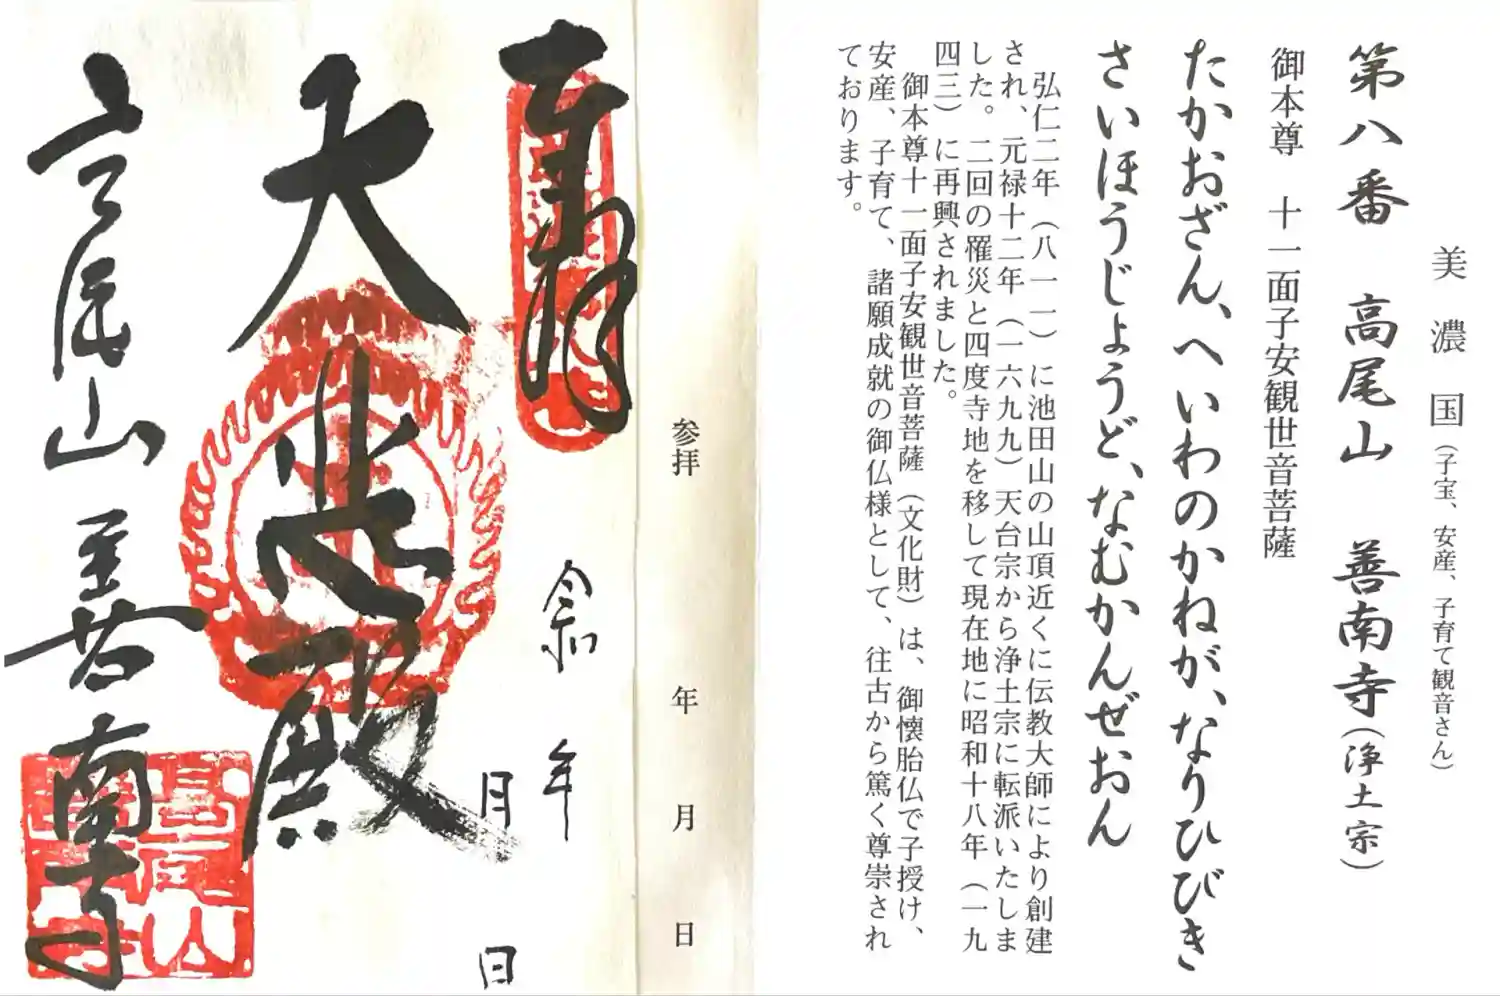 美濃国(子宝、安産、子育て観音さん)
第八番 高尾山 善南寺(浄土宗)
御本尊 十一面子安観世音菩薩
たかおざん、へいわのかねが、なりひびき
さいほうじょうど、なむかんぜおん
弘仁二年(八一一)に池田山の山頂近くに伝教大師により創建
され、元禄十二年(一六九九)天台宗から浄土宗に転派いたしま
した。二回の罹災と四度寺地を移して現在地に昭和十八年(一九
四三)に再興されました。
御本尊十一面子安観世音菩薩(文化財)は、御懐胎仏で子授け、
安産、子育て、諸願成就の御仏様として、往古から篤く尊崇され
ております。
参拝 年 月 日
奉拝
令和 年
月 日
大悲殿
高尾山 善南寺
高尾山
善南寺